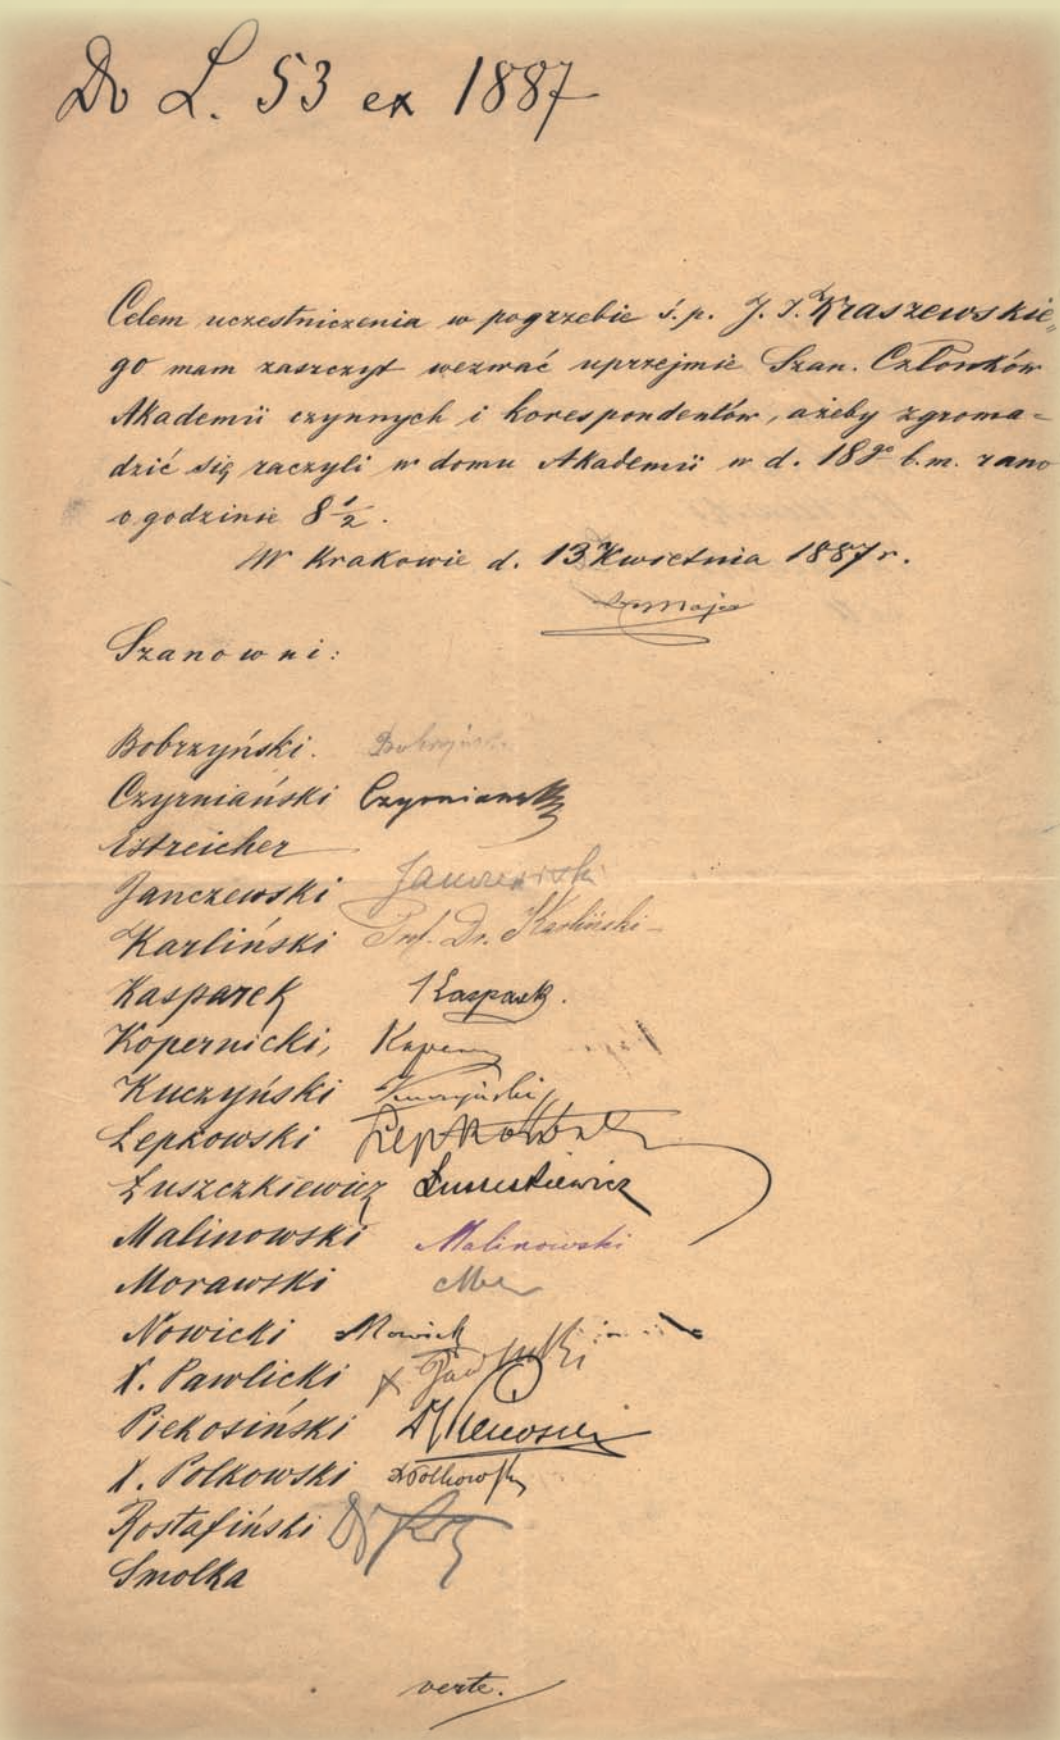 Do L. 53 ex 1887
Celem uczestniczenia w pogrzebie ś.p. J. I. Kraszewskie„
go mam zaszczyt wezwać uprzejmie Szan. Członków
Akademii czynnych i korespondentów, ażeby zgroma=
dzić się raczyli w domu Akademii w d. 18go b.m. rano
o godzinie 8 1/2.
W Krakowie d. 13 Kwietnia 1887 r.
Majer
Szanowni:
Bobrzyński. Bobrzyński
Czyrniański Czyrniański
Estreicher
Janczewski Janczewski
Karliński Prof. Dr. Karliński
Kasparek Kasparek.
Kopernicki, Koper
Kuczyński Kuczyński
Łepkowski Łepkowski
Łuszczkiewicz Łuszczkiewicz
Malinowski Malinowski
Morawski
Nowicki Nowicki
X. Pawlicki X Pawlicki
Piekosiński Piekosiński
X. Polkowski X Polkowski
Rostafiński Dr
Smolka
verte.